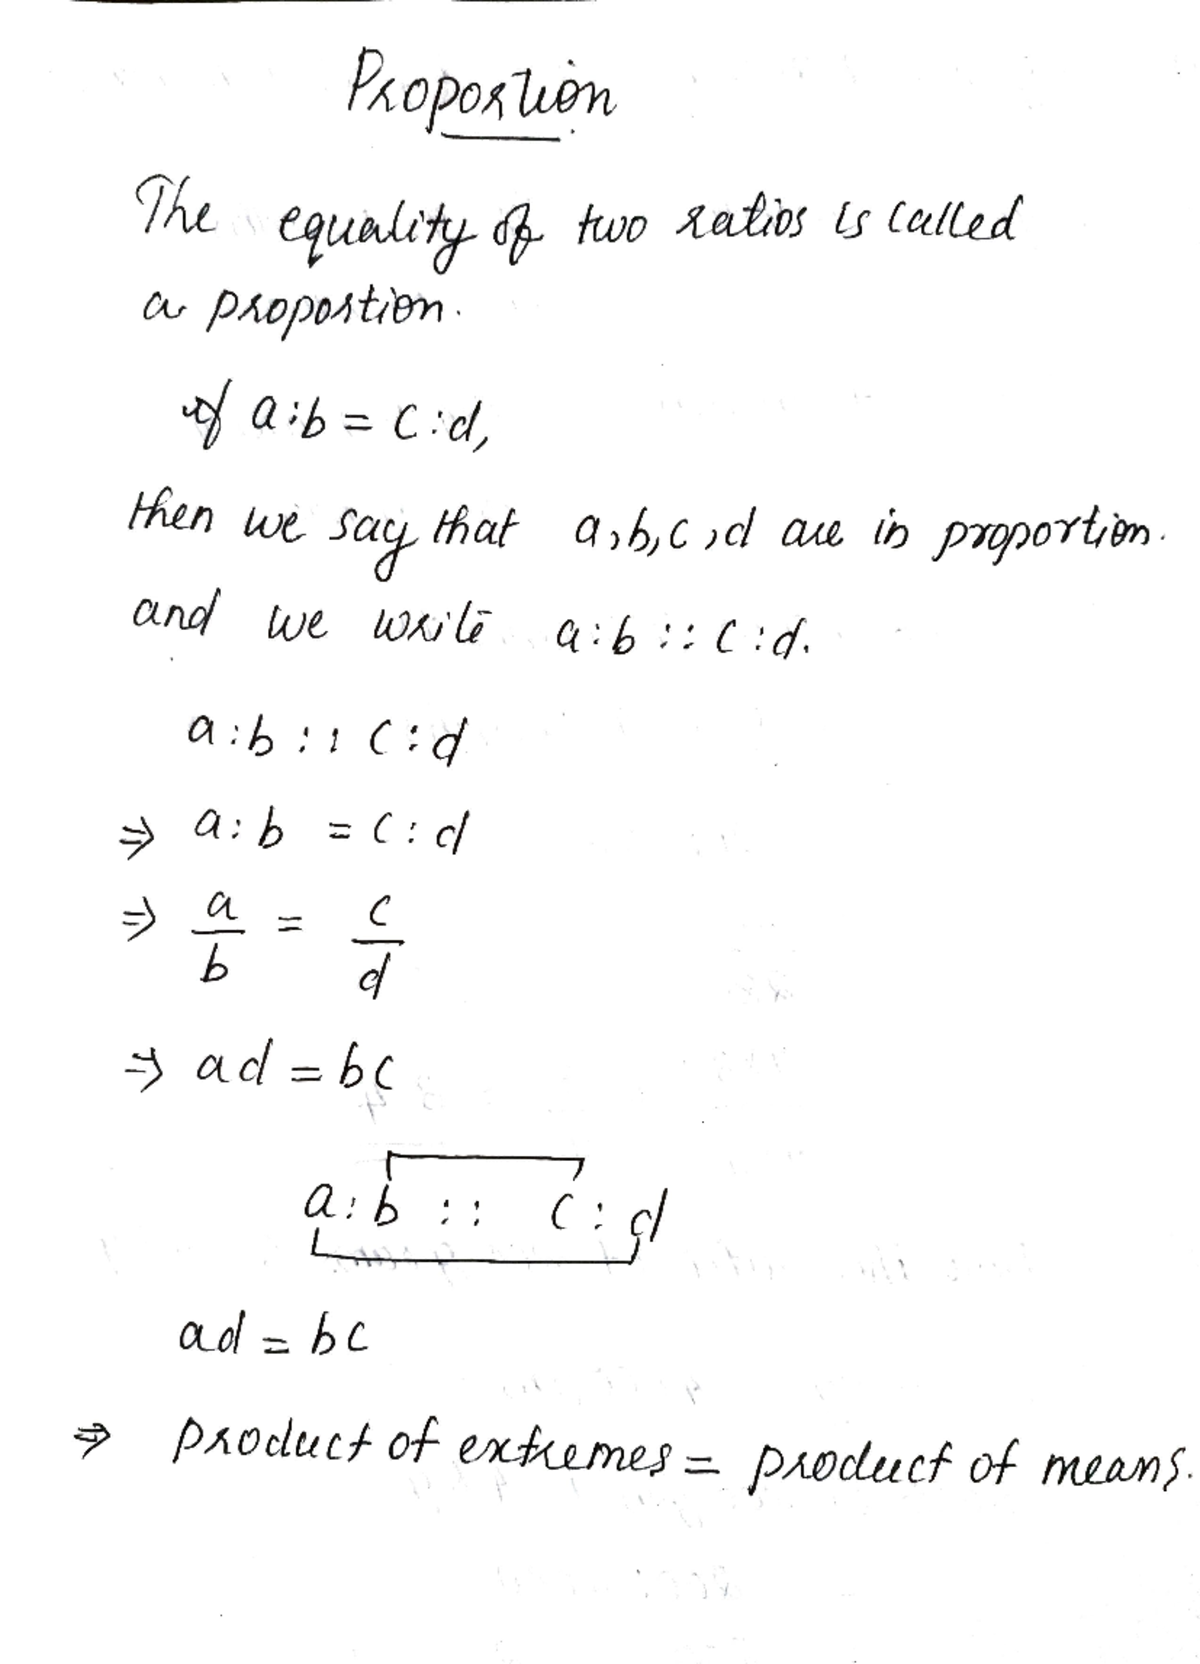 Proportion
The equality of two ratios is called
a proportion.
if a:b = c:d,
then we say that a,b,c,d are in proportion.
and we write a:b :: c:d.
a:b :: c:d
⇒ a:b = c:d
⇒ a/b = c/d
⇒ ad = bc
a:b :: c:d
ad = bc
⇒ product of extremes = product of means.